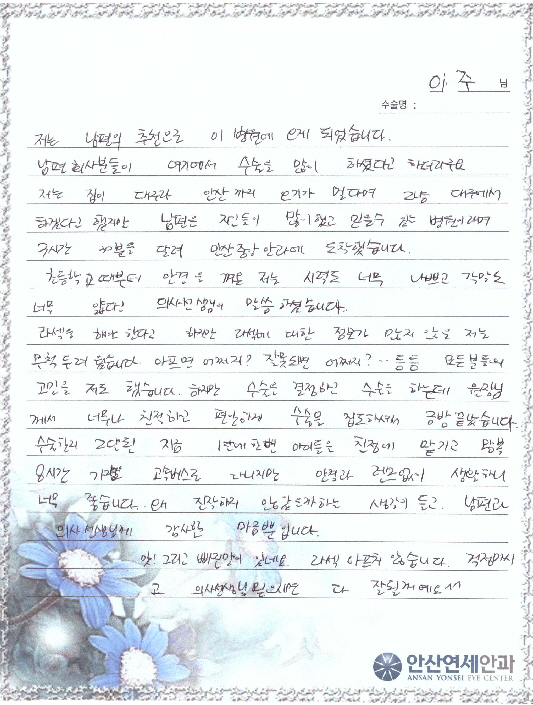 이 주 님
수술명 :
저는 남편의 추천으로 이 병원에 오게 되었습니다.
남편 회사분들이 여기에서 수술을 많이 하셨다고 하더라구요
저는 집이 대구라 안산까지 오기가 멀다며 그냥 대구에서
하겠다고 했지만 남편은 지인들이 많이 했고 믿을수 있는 병원이라며
3시간 30분을 달려 안산중앙안과에 도착했습니다.
초등학교때부터 안경을 껴온 저는 시력도 너무 나쁘고 각막도
너무 얇다고 의사선생님이 말씀 하셨습니다.
라섹을 해야 한다고 하지만 라섹에 대한 정보가 많지 않을 저는
무척 두려웠습니다. 아프면 어쩌지? 잘못되면 어쩌지? ·· 등등 모든분들의
고민을 저도 했습니다. 하지만 수술을 결정하고 수술을 하는데 원장님
께서 너무나 친절하고 편안하게 수술을 집도하셔서 금방 끝났습니다.
수술한지 2달된 지금 1달에 한번 아이들을 친정에 맡기고 왕복
8시간 고속버스로 다니지만 안경과 렌즈없이 생활하니
너무 좋습니다. 왜 진작하지 않았을까하는 생각이 들고 남편과
의사선생님께 감사한 마음뿐입니다.
앗! 그리고 빠진말이 있네요. 라섹 아프지 않습니다. 걱정마시
고 의사선생님 믿으시면 다 잘될거예요 ^^
안산연세안과
ANSAN YONSEI EYE CENTER